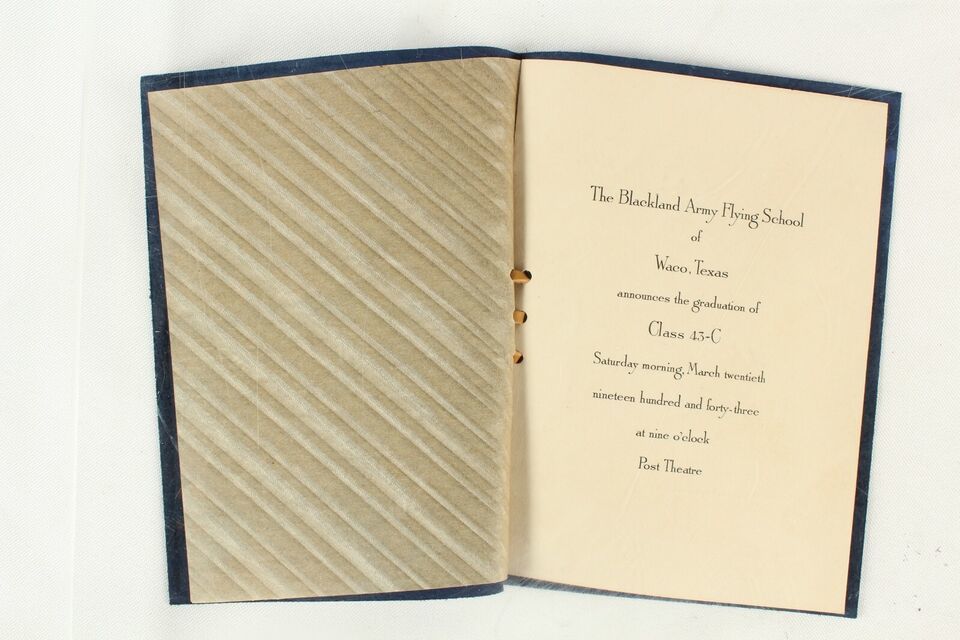 The Blackland Army Flying School
of
Waco, Texas
announces the graduation of
Class 43-C
Saturday morning, March twentieth
nineteen hundred and forty-three
at nine o'clock
Post Theatre